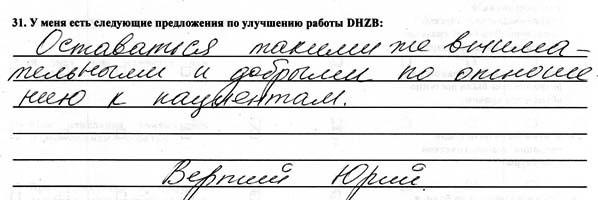 31. У меня есть следующие предложения по улучшению работы DHZB:
Оставаться такими же внима-
тельными и добрыми по отноше-
нию к пациентам.
Юрий